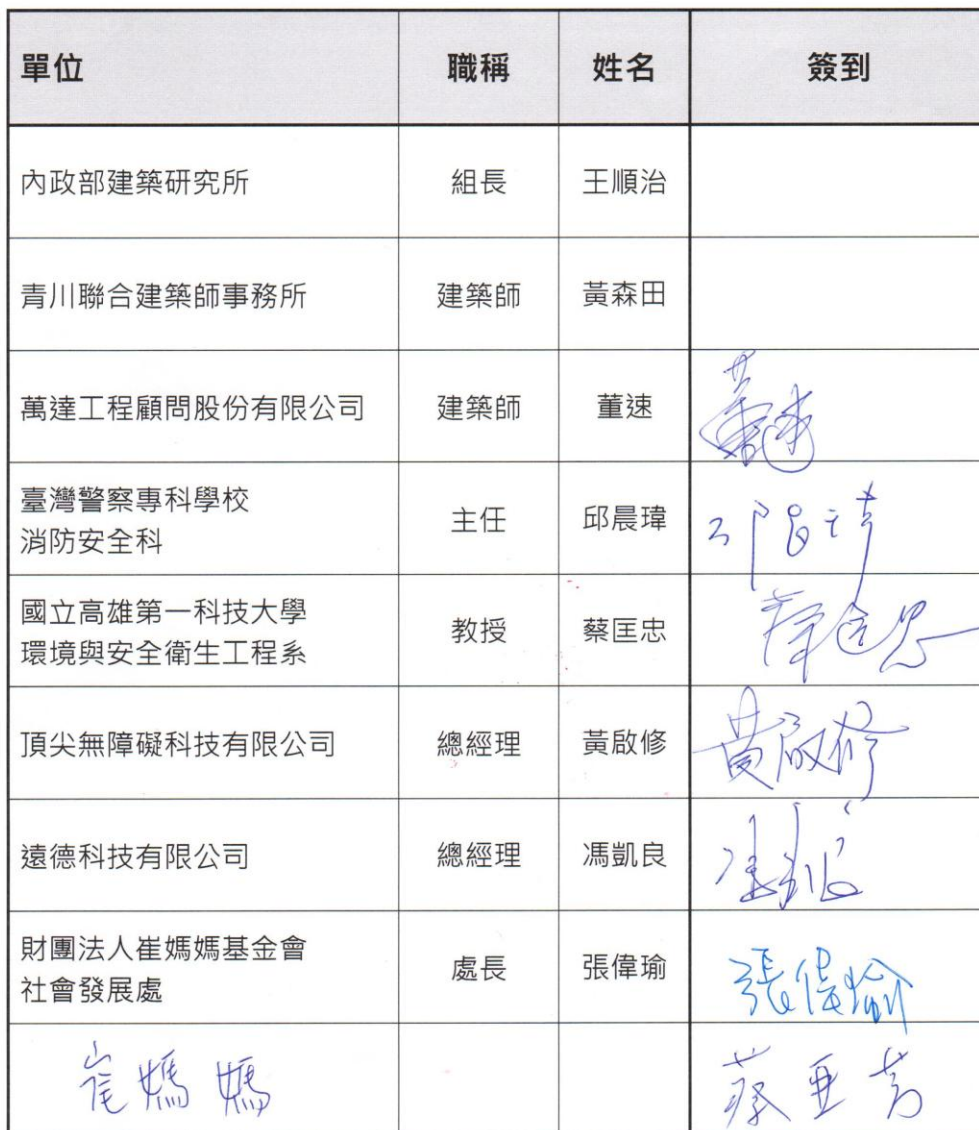 單位 職稱 姓名 簽到
內政部建築研究所 組長 王順治
青川聯合建築師事務所 建築師 黃森田
萬達工程顧問股份有限公司 建築師 董速 董速
臺灣警察專科學校
消防安全科 主任 邱晨瑋 邱晨瑋
國立高雄第一科技大學
環境與安全衛生工程系 教授 蔡匡忠 蔡匡忠
頂尖無障礙科技有限公司 總經理 黃啟修 黃啟修
遠德科技有限公司 總經理 馮凱良 馮凱良
財團法人崔媽媽基金會
社會發展處 處長 張偉瑜 張偉瑜
崔媽媽 蔡亞芳